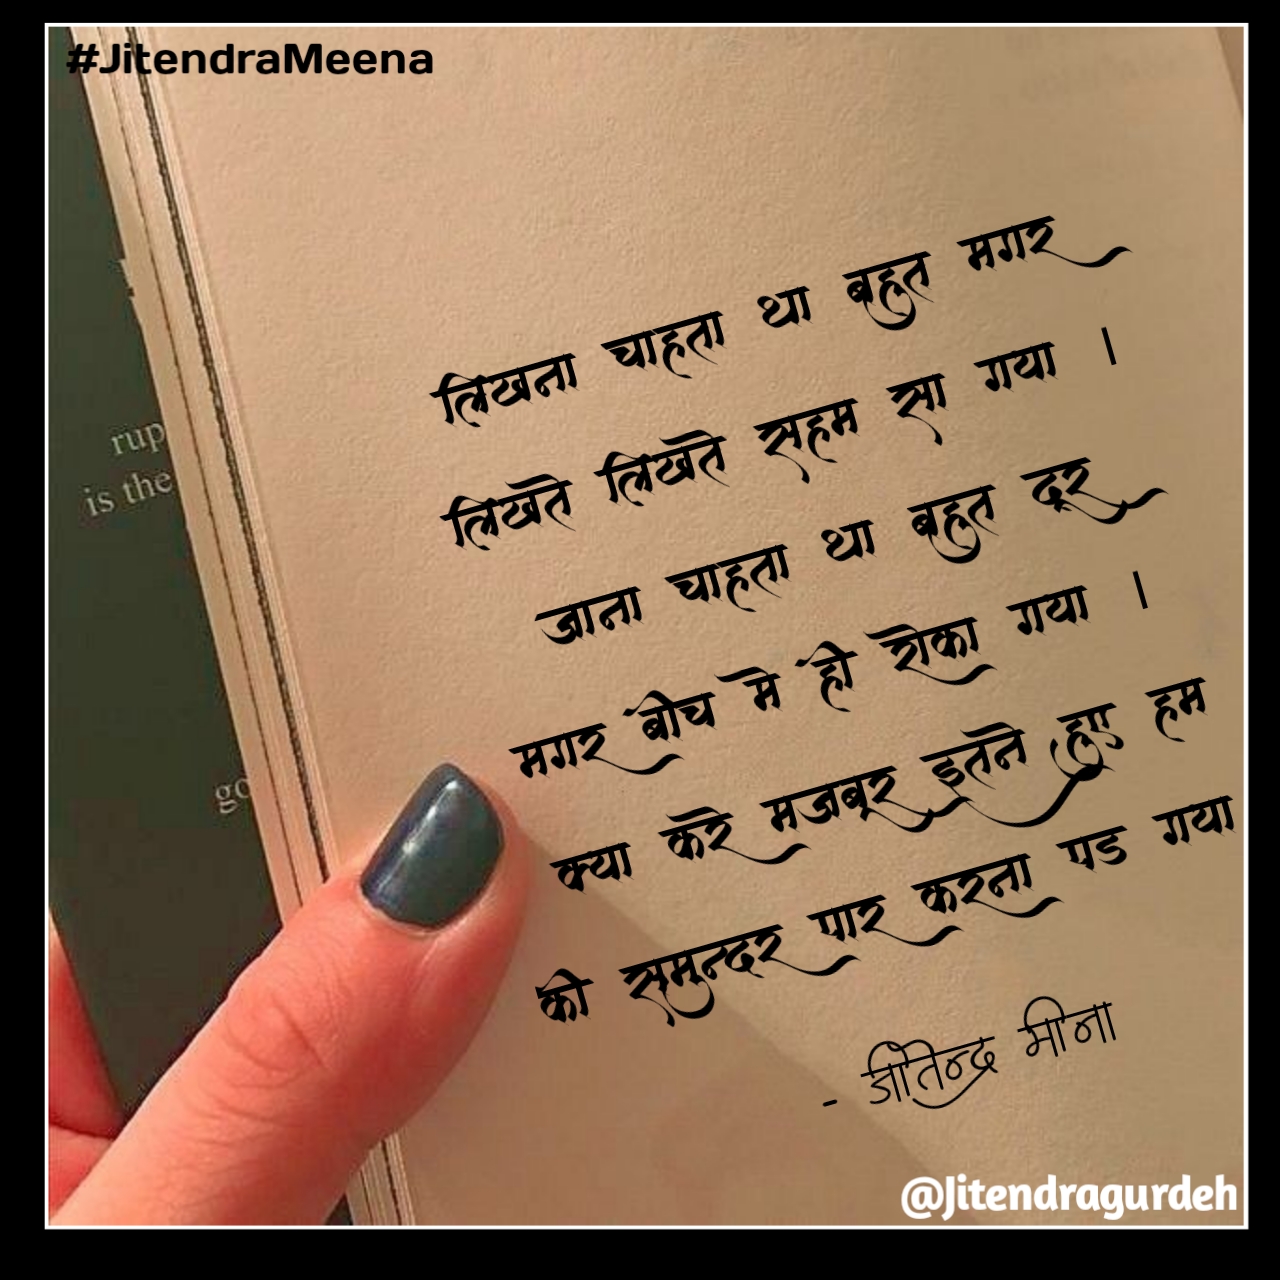 #JitendraMeena
लिखना चाहता था बहुत मगर
लिखते लिखते सहम सा गया ।
जाना चाहता था बहुत दूर
मगर बीच मे ही रोका गया ।
क्या करे मजबूर इतने हुए हम
की समुन्दर पार करना पड गया
- जीतेन्द्र मीना
rup
is the
go
@Jitendragurdeh